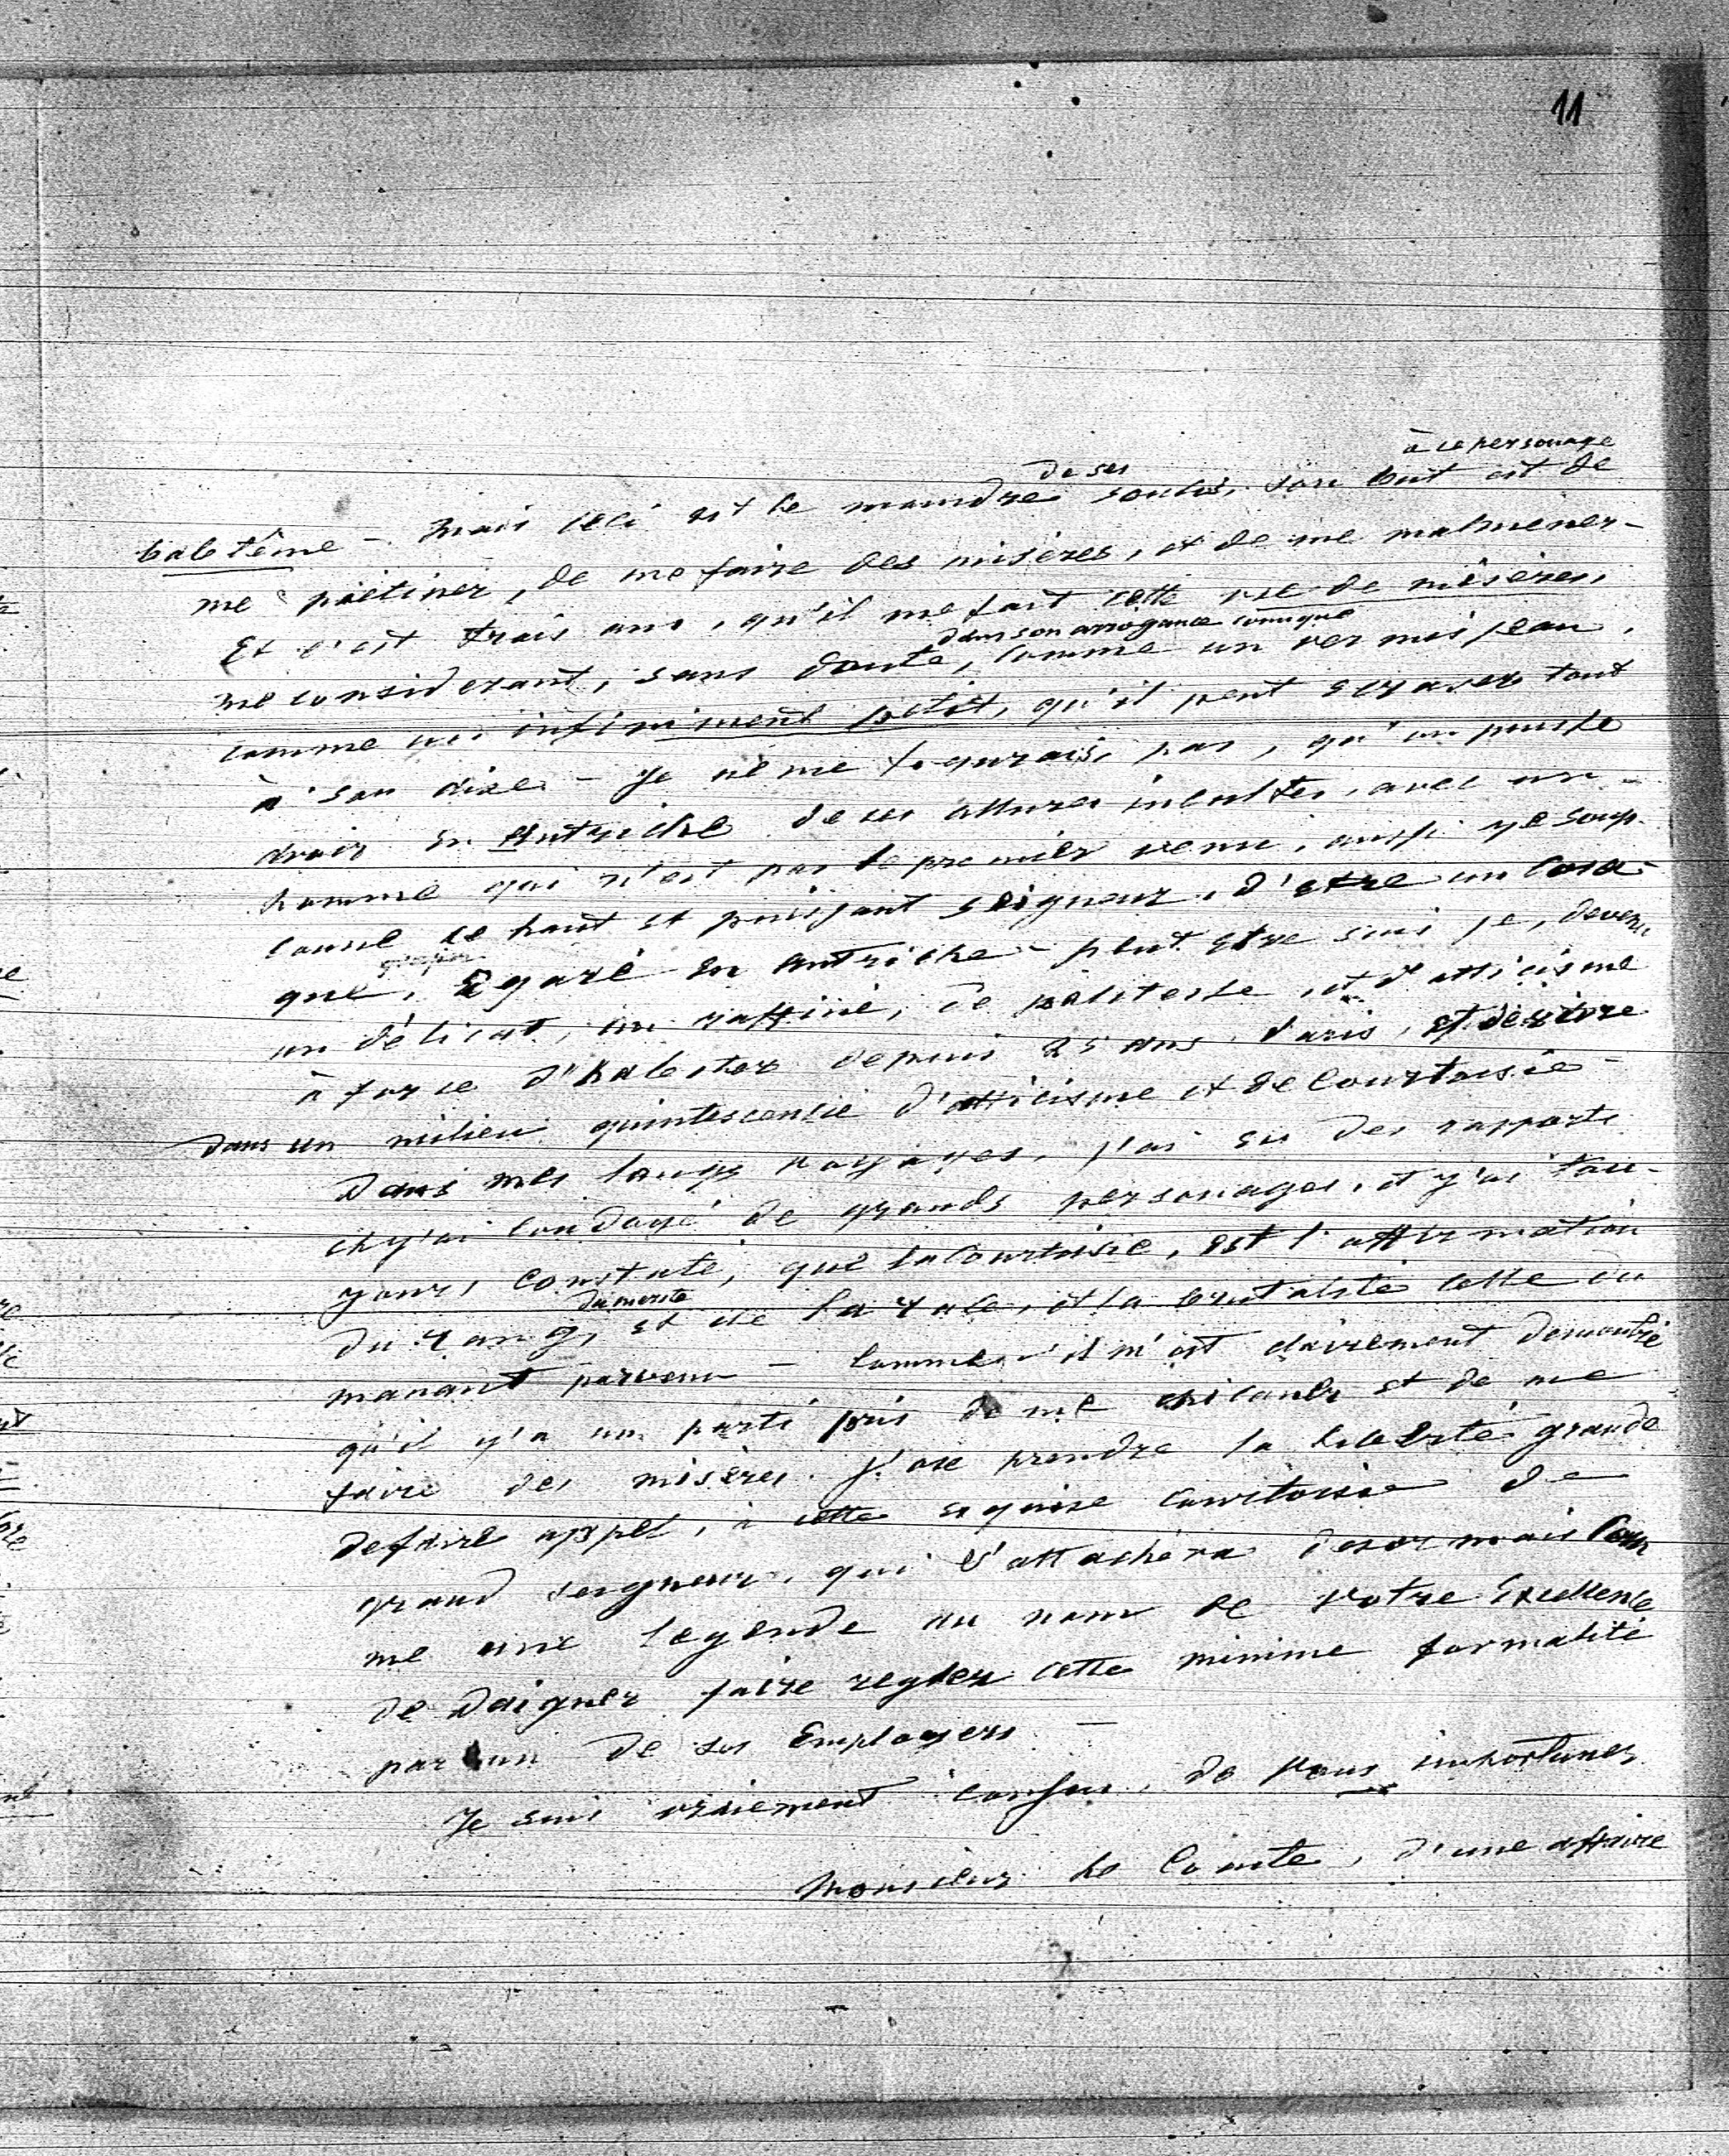 11
à ce personage
de ses
balotême - Mais ceci est le moindre soucis, son but est de
me piétiner, de me faire des misères, et de me malmener -
Et c'est trois ans, qu'il me fait cette vie de misères,
dans son arrogance comique
me considerant, sans doute, comme un vermisseau,
comme un infiniment petit, qu'il peut ecraser tout
à son aise - Je ne me figurais pas, qu'on puisse
avoir en Autriche de ces allures incultes, avec un
homme qui n'est pas le premier venu, aussi je soup-
conne ce haut et puissant seigneur, d'etre un cosa-
que, Egaré en Autriche - peut etre suis je, devenu
un délicat, un raffiné, de politesse, et d'atticisme
à force d'habiter depuis 25 ans Paris, et de vivre
dans un milieu quintescencié d'atticisme et de Courtoisie -
Dans mes longs voyages, j'ai eu des rapports
et j'ai coudoyé de grands personages, et j'ai tou-
jours constaté, que la Courtoisie, est l'affirmation
du merite
du rang, et de la race, et la brutalité celle du
manant parvenu - Comme il m'est clairement demontré
qu'il y'a un parti pris de me chicaner et de me
faire des misères. J'ose prendre la liberté grande
de faire appel, à cette exquise courtoisie de
grand seigneur, qui s'attachera desormais com
me une legende au nom de Votre Excellence
de daigner faire regler cette minime formalité
par un de ses Employers -
Je suis vraiement confus, de Vous importuner
Monsieur le Comte, d'une affaire